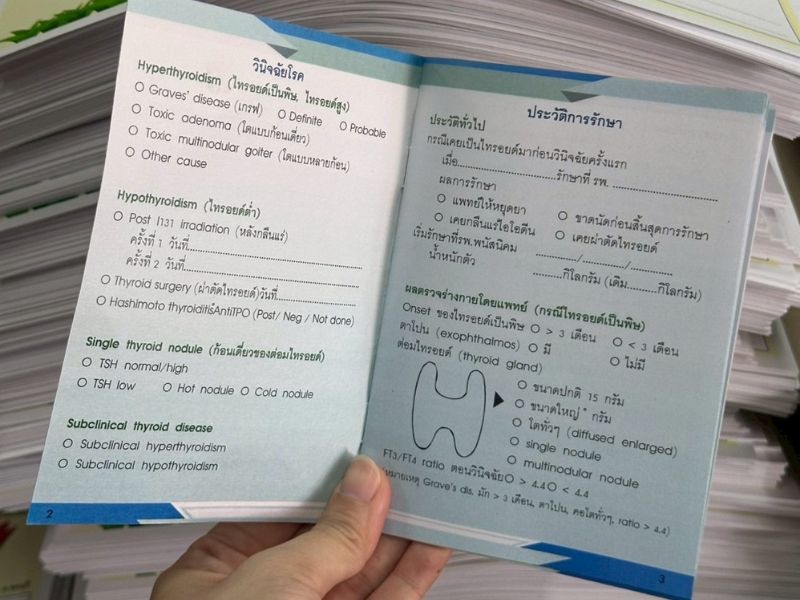 วินิจฉัยโรค
Hyperthyroidism (ไทรอยด์เป็นพิษ, ไทรอยด์สูง)
O Graves' disease (เกรฟ) O Definite O Probable
O Toxic adenoma (โตแบบก้อนเดี่ยว)
O Toxic multinodular goiter (โตแบบหลายก้อน)
O Other cause
Hypothyroidism (ไทรอยด์ต่ำ)
O Post I131 irradiation (หลังกลืนแร่)
ครั้งที่ 1 วันที่..........
ครั้งที่ 2 วันที่..........
O Thyroid surgery (ผ่าตัดไทรอยด์)วันที่..........
O Hashimoto thyroiditisAntiTPO (Post/ Neg / Not done)
Single thyroid nodule (ก้อนเดี่ยวของต่อมไทรอยด์)
O TSH normal/high
O TSH low O Hot nodule O Cold nodule
Subclinical thyroid disease
O Subclinical hyperthyroidism
O Subclinical hypothyroidism
2
ประวัติการรักษา
ประวัติทั่วไป
กรณีเคยเป็นไทรอยด์มาก่อนวินิจฉัยครั้งแรก
เมื่อ..........รักษาที่ รพ. ..........
ผลการรักษา
O แพทย์ให้หยุดยา O ขาดนัดก่อนสิ้นสุดการรักษา
O เคยกลืนแร่ไอโอดีน O เคยผ่าตัดไทรอยด์
เริ่มรักษาที่รพ.พนัสนิคม ........../........../..........
น้ำหนักตัว ..........กิโลกรัม (เดิม..........กิโลกรัม)
ผลตรวจร่างกายโดยแพทย์ (กรณีไทรอยด์เป็นพิษ)
Onset ของไทรอยด์เป็นพิษ O > 3 เดือน O < 3 เดือน
ตาโปน (exophthalmos) O มี O ไม่มี
ต่อมไทรอยด์ (thyroid gland)
O ขนาดปกติ 15 กรัม
O ขนาดใหญ่ กรัม
O โตทั่วๆ (diffused enlarged)
O single nodule
O multinodular nodule
FT3/FT4 ratio ตอนวินิจฉัยO > 4.4O < 4.4
(หมายเหตุ Grave's dis. มัก > 3 เดือน, ตาโปน, คอโตทั่วๆ, ratio > 4.4)
3